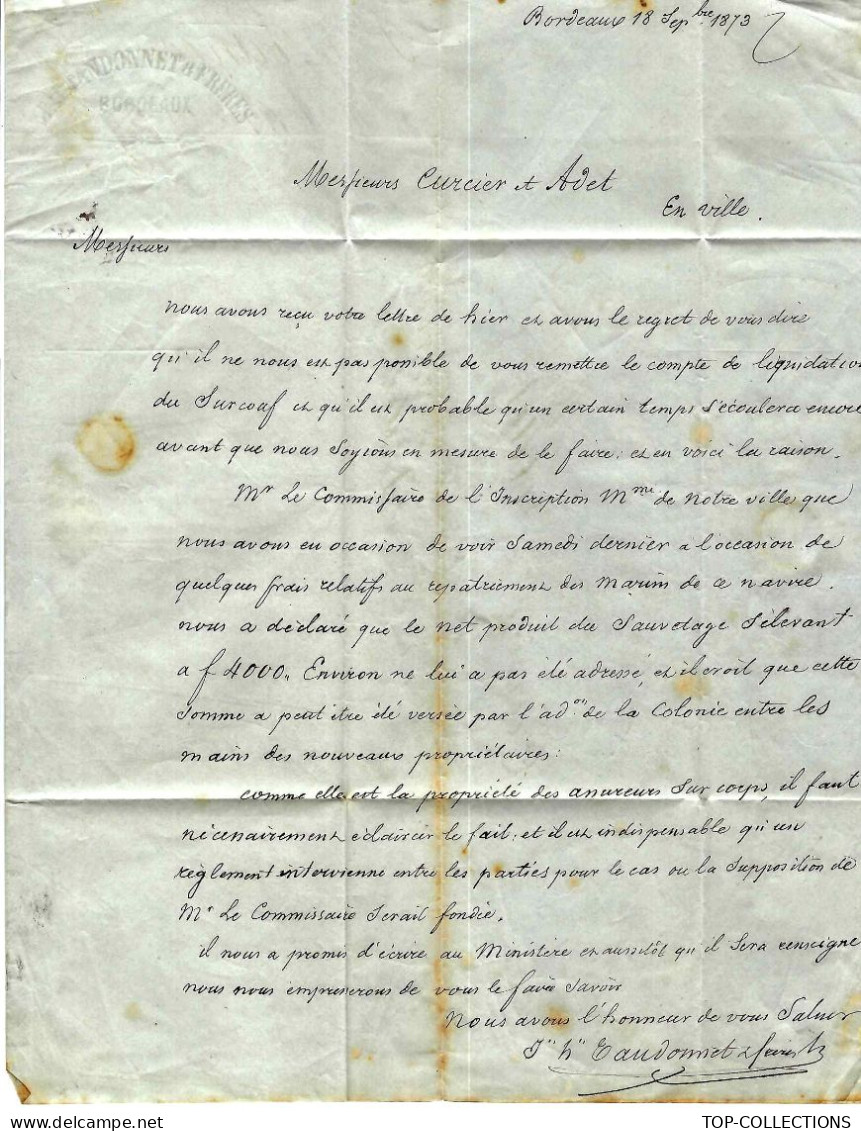 Bordeaux 18 Sepbre 1873
NDONNET & FRÈRES
BORDEAUX
Messieurs Curcier et Adet
En ville.
Messieurs
nous avons reçu votre lettre de hier et avons le regret de vous dire
qu'il ne nous est pas possible de vous remettre le compte de liquidation
du Surcouf et qu'il est probable qu'un certain temps s'écoulera encore
avant que nous soyions en mesure de le faire; et en voici la raison.
Mr Le Commissaire de l'Inscription Mme de notre ville que
nous avons eu occasion de voir Samedi dernier a l'occasion de
quelques frais relatifs au repatriement des marins de ce navire.
nous a déclaré que le net produit du Sauvetage s'élevant
a f 4000,, Environ ne lui a pas été adressé, et il croit que cette
somme a peut itre été versée par l'adon de la Colonie entre les
mains des nouveaux propriétaires:
comme elle est la propriété des assureurs sur corps, il faut
nécessairement éclaircir le fait; et il est indispensable qu'un
règlement intervienne entre les parties pour le cas ou la supposition de
Mr Le Commissaire Serait fondée.
il nous a promis d'écrire au Ministère et aussitôt qu'il sera renseigné
nous nous empresserons de vous le faire savoir
Nous avons l'honneur de vous Saluer
Jn hy Tandonnet & frères
TOP-COLLECTIONS